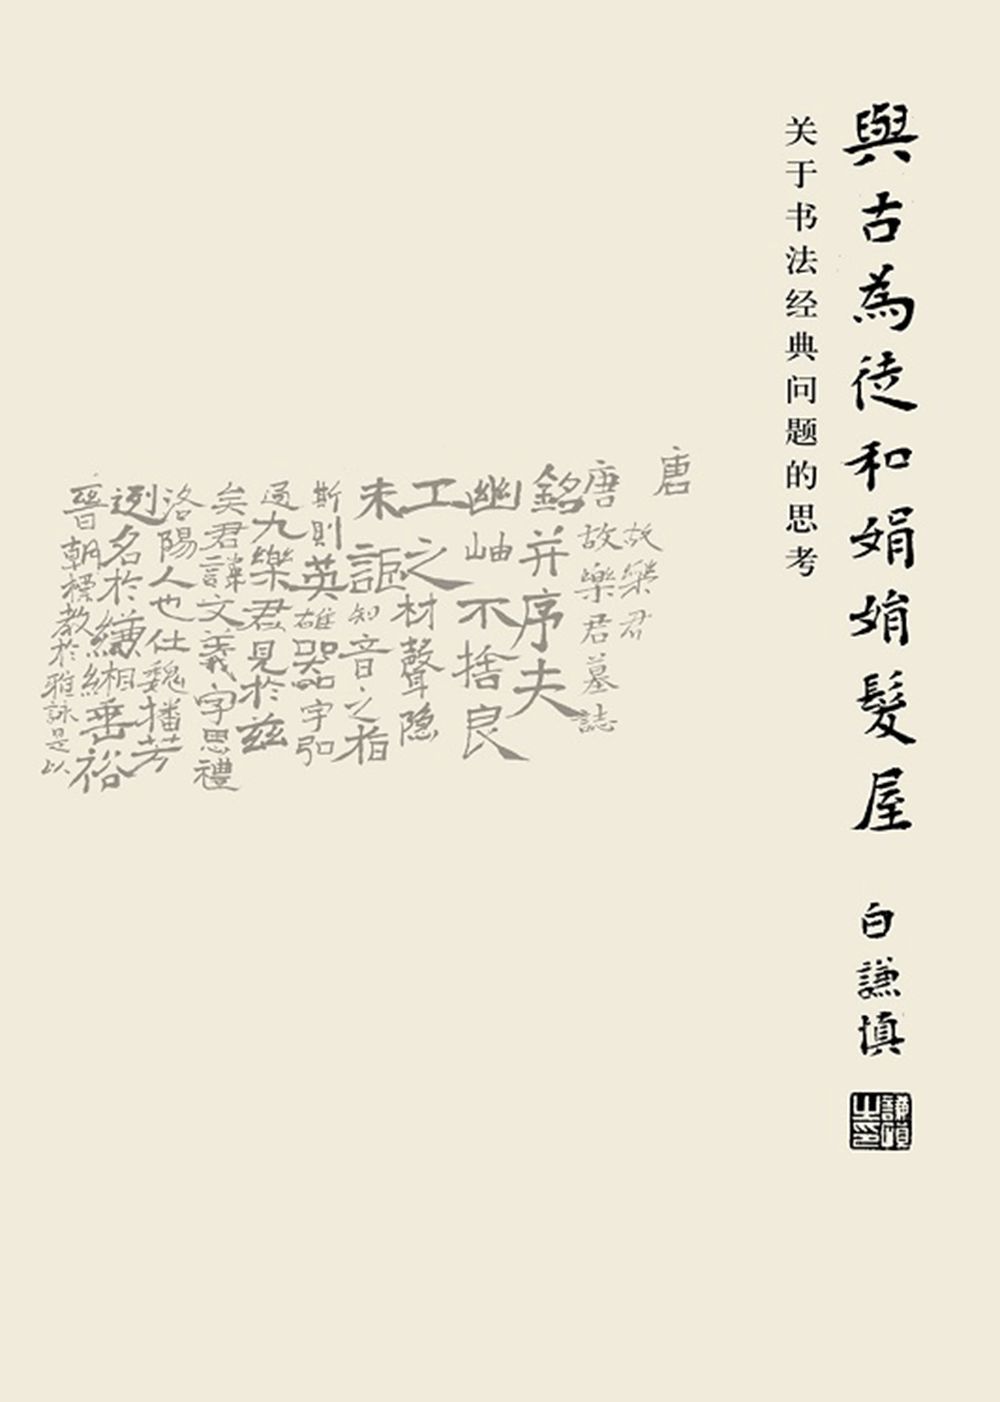 與古為徒和娟娟髮屋
白謙慎
謙慎之印
关于书法经典问题的思考
唐
故樂君
唐故樂君墓誌
銘并序夫
幽岫不捨良
工之材聲隐
未詎知音之指
斯則英雄器字弘
過九樂君見於茲
矣君諱文義字思禮
洛陽人也仕魏播芳
迾名於縑緗垂裕
晉朝標教於雅詠是以